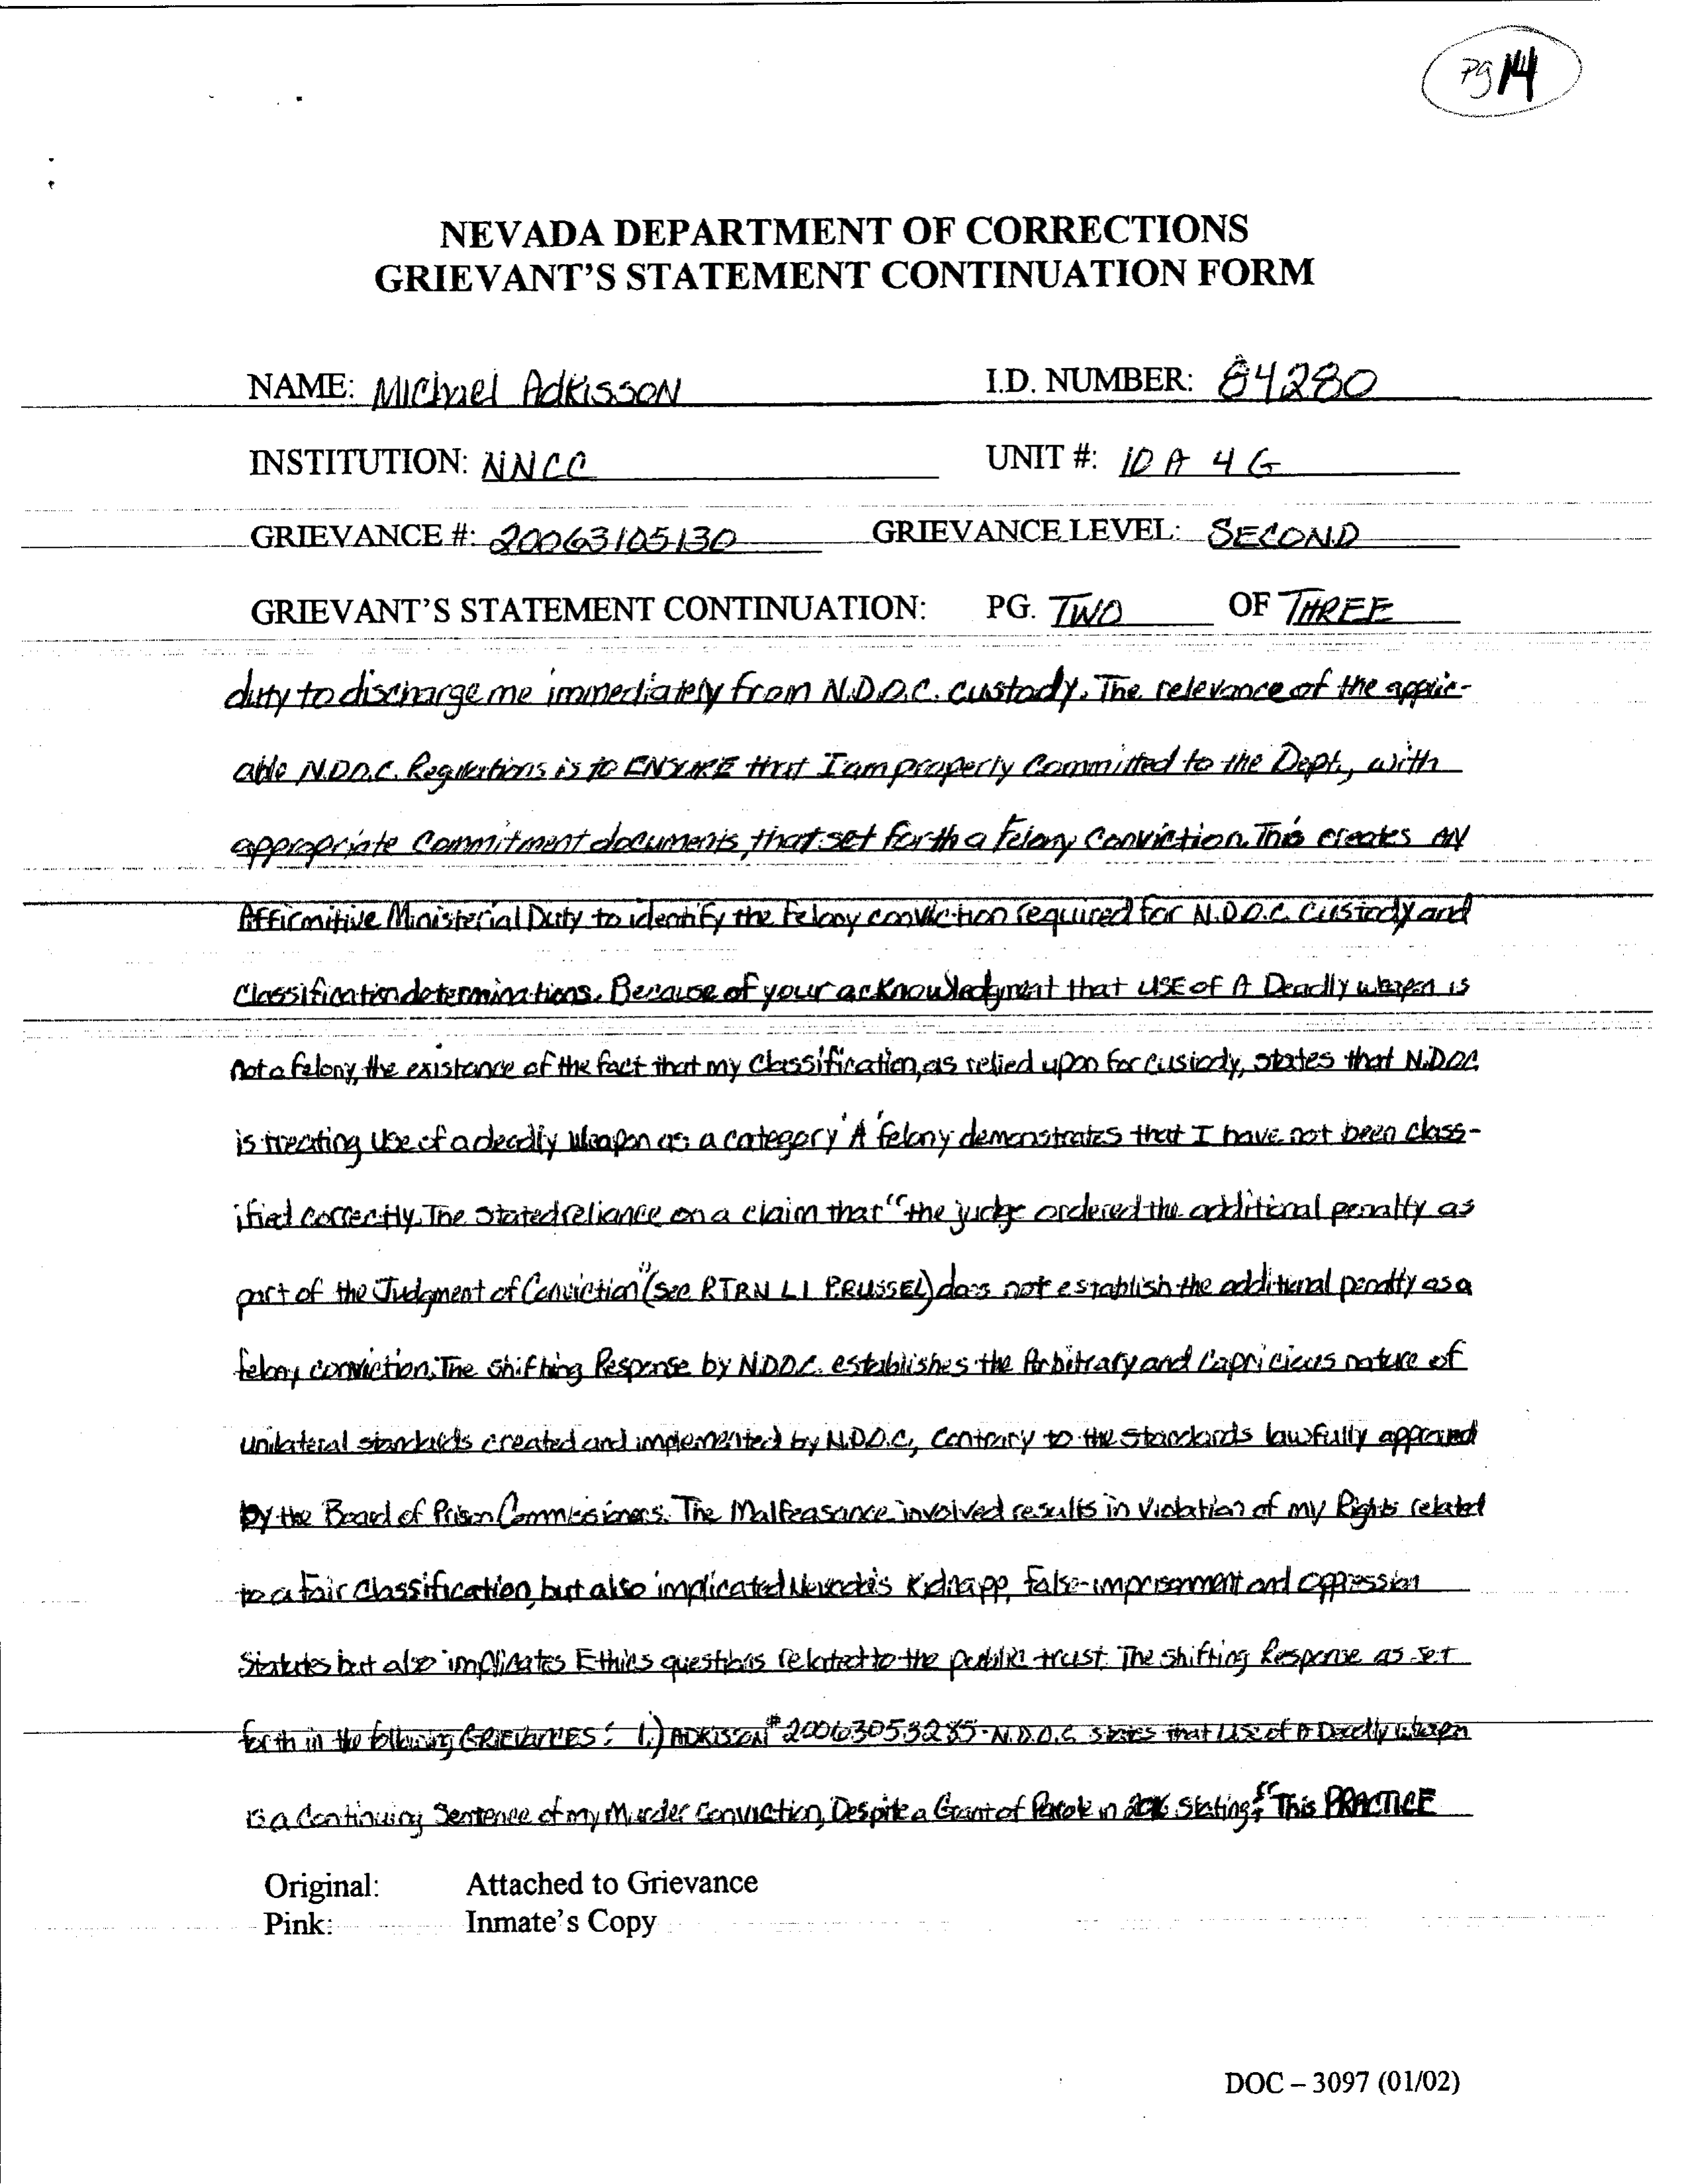 Pg 14
NEVADA DEPARTMENT OF CORRECTIONS
GRIEVANT'S STATEMENT CONTINUATION FORM
NAME: Michael Adkisson I.D. NUMBER: 84280
INSTITUTION: NNCC UNIT #: 10 A 4 G
GRIEVANCE #: 20063105130 GRIEVANCE LEVEL: SECOND
GRIEVANT'S STATEMENT CONTINUATION: PG. TWO OF THREE
duty to discharge me immediately from N.D.O.C. custody. The relevance of the applic-
able N.D.O.C. Regulations is to ENSURE that I am properly committed to the Dept., with
appropriate commitment documents, that set forth a felony conviction. This creates AN
Affirmitive Ministerial Duty to identify the felony conviction required for N.D.O.C. custody and
classification determinations. Because of your acknowledgment that USE of A Deadly weapon is
not a felony, the existance of the fact that my classification, as relied upon for custody, states that N.D.O.C.
is treating Use of a deadly Weapon as a category 'A' felony demonstrates that I have not been class-
ified correctly. The stated reliance on a claim that "the judge ordered the additional penalty as
part of the Judgment of Conviction" (see RTRN L1 P.RUSSEL) does not establish the additional penalty as a
felony conviction. The shifting Response by N.D.O.C. establishes the Arbitrary and Capricious nature of
unilateral standards created and implemented by N.D.O.C., contrary to the standards lawfully approved
by the Board of Prison Commissioners. The Malfeasance involved results in violation of my Rights related
to a fair classification, but also implicated Nevada's Kidnapp, false-imprisonment and oppression
Statutes but also implicates Ethics questions related to the public trust. The shifting Response as set
forth in the following GRIEVANCES: 1.) ADKISSON # 20063053285 - N.D.O.C. states that Use of A Deadly Weapon
is a Continuing Sentence of my Murder Conviction, Despite a Grant of Parole in stating; "This PRACTICE
Original: Attached to Grievance
Pink: Inmate's Copy
DOC – 3097 (01/02)